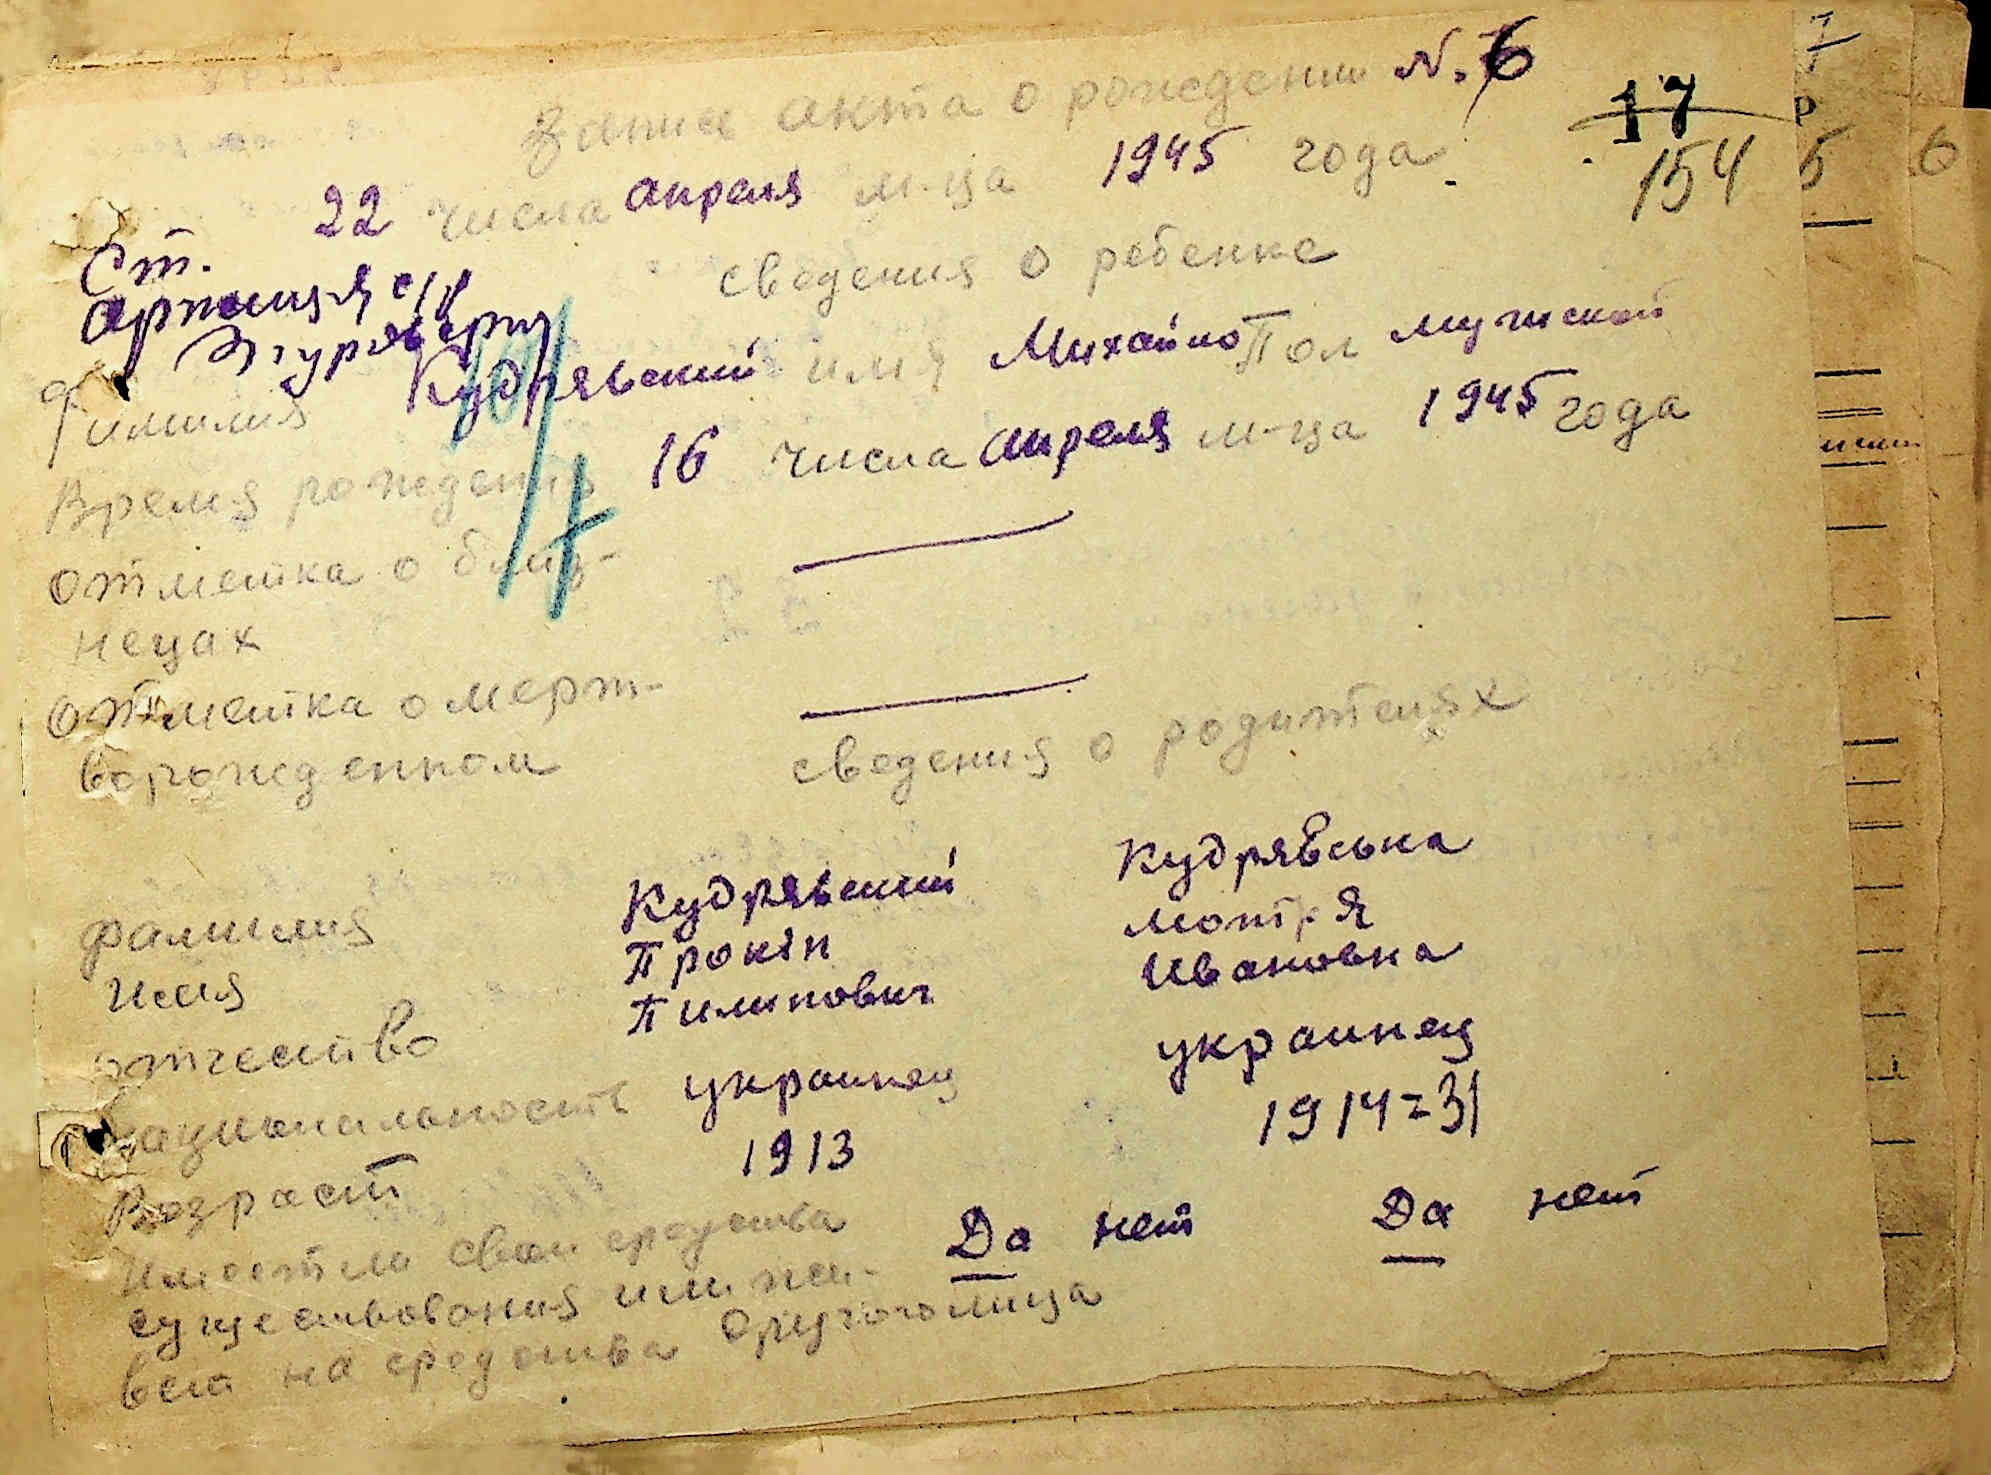 Запись акта о рождении N. 6
17
154
22 числа апреля м-ца 1945 года
Ст.
сведения о ребенке
фамилия Кудрявский имя Михайло Пол мужской
Время рождения 16 числа апреля м-ца 1945 года
Отметка о близ-
нецах
Отметка о мерт-
ворожденном
сведения о родителях
фамилия Кудрявский Кудрявська
имя Прокіп мотря
отчество Пилипович Ивановна
национальность украинец украинец
Возраст 1913 1914=31
Имеет ли свои средства Да нет Да нет
существования или жи-
вет на средства другого лица